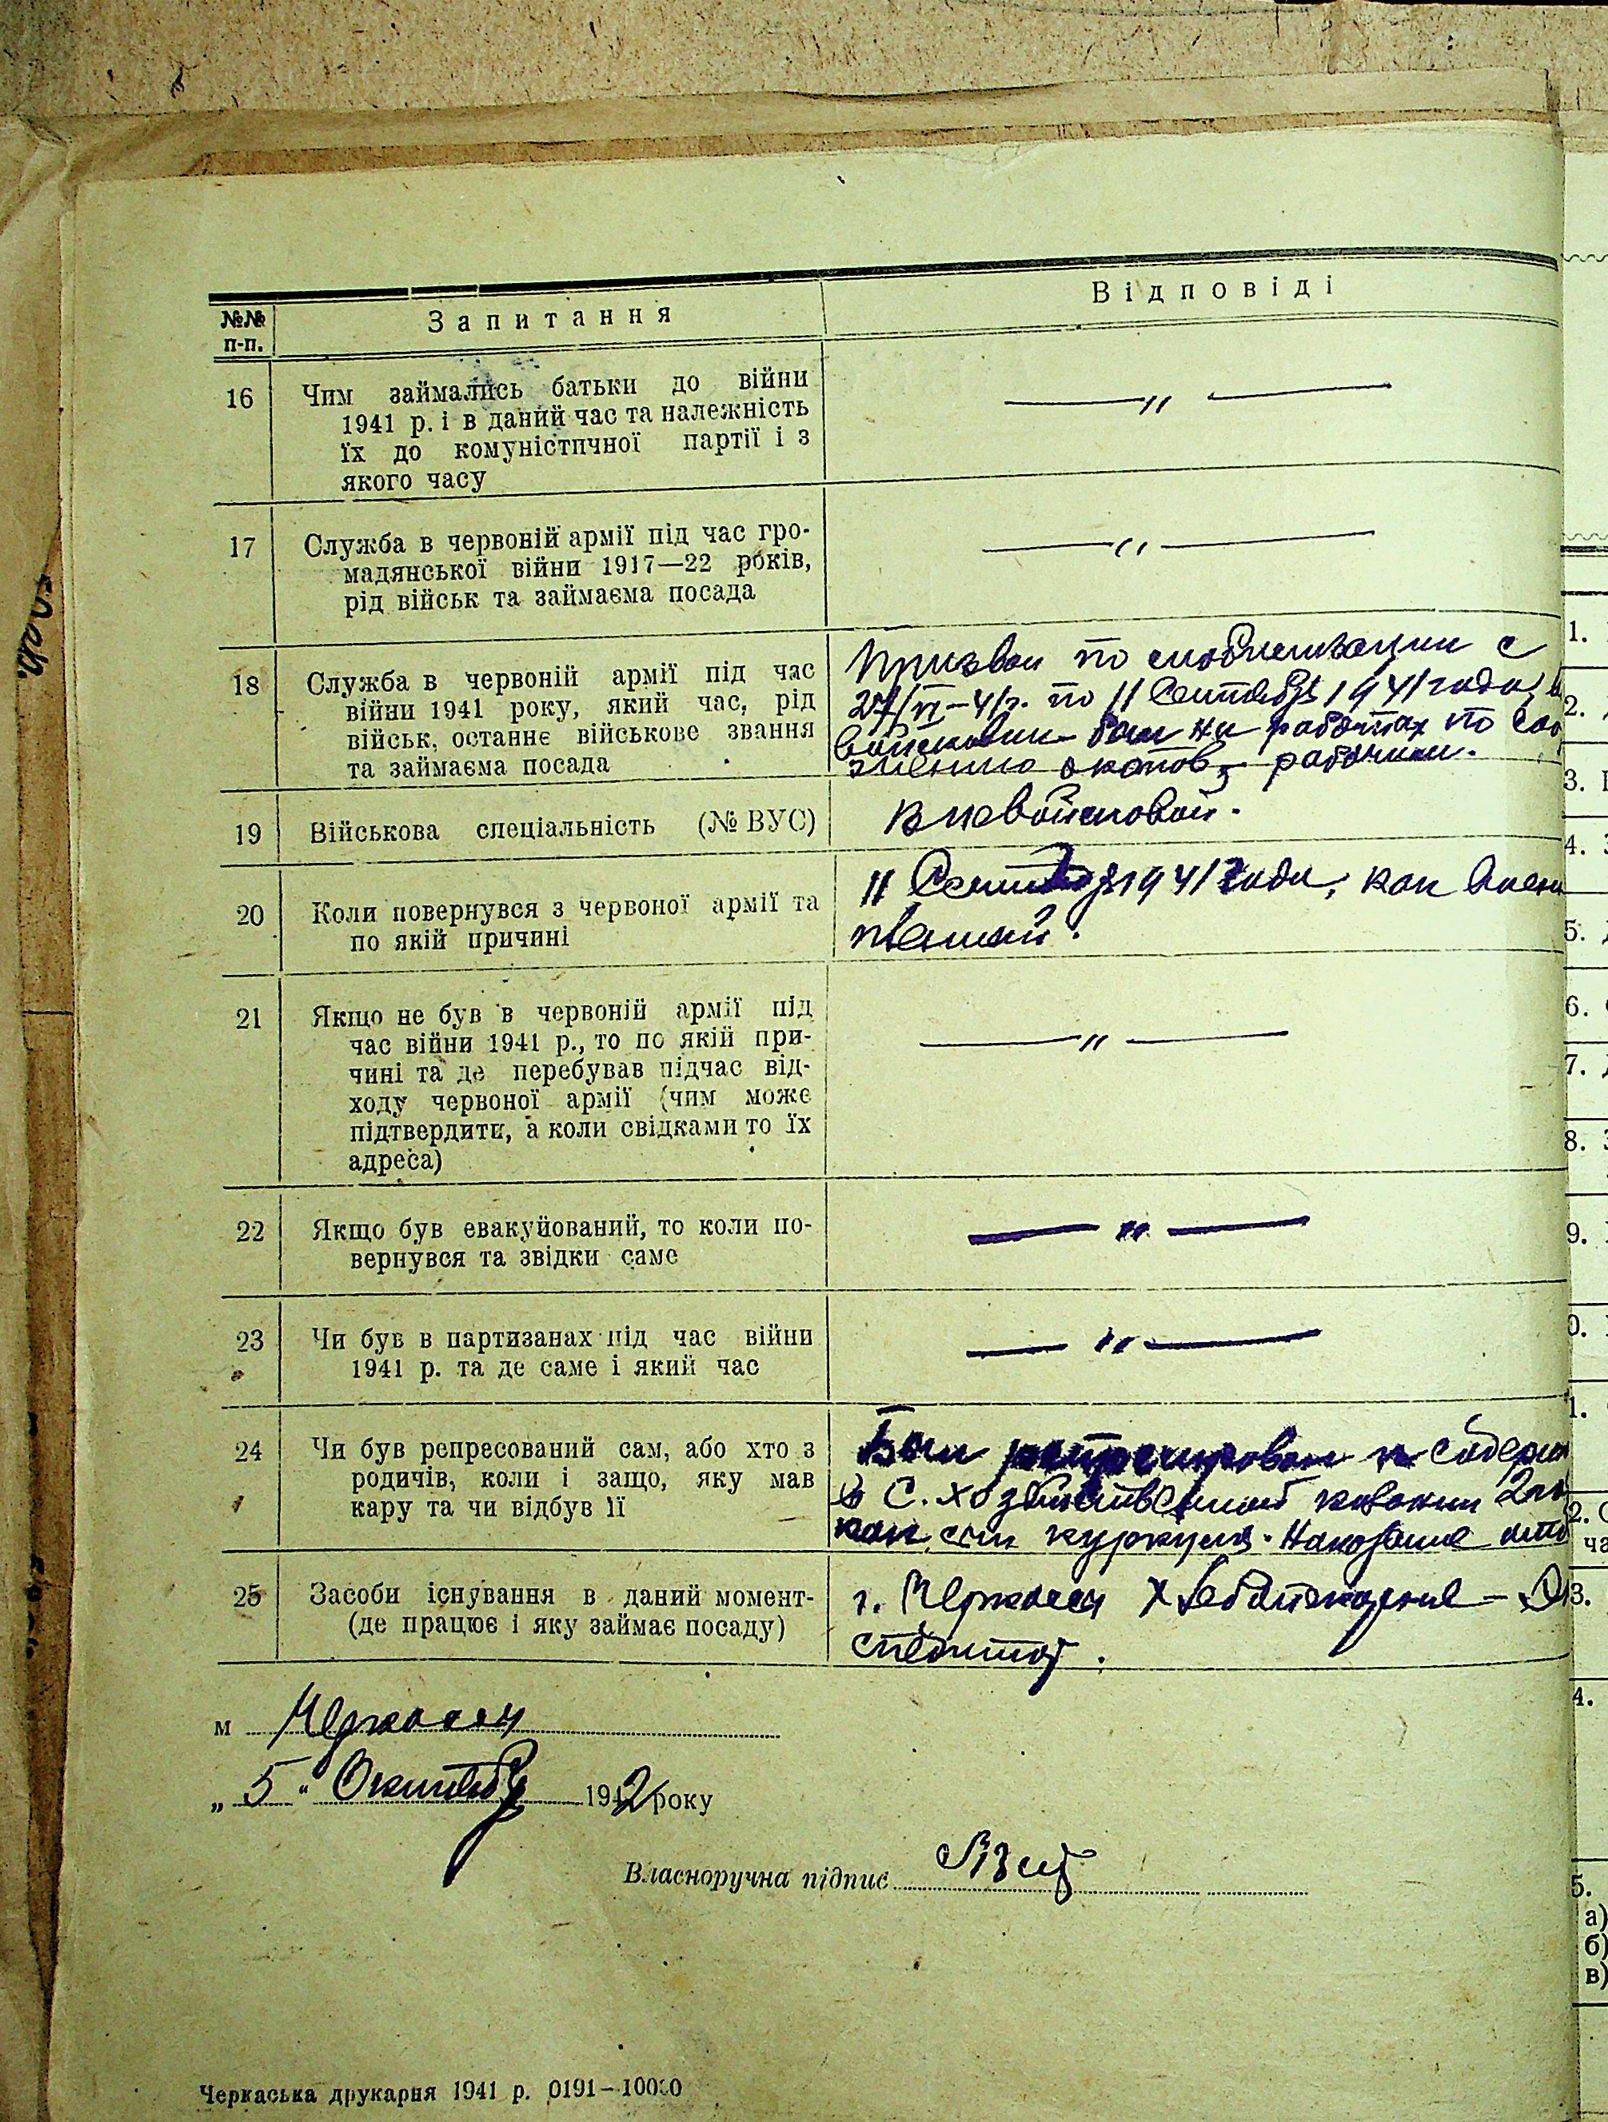 №№ п-п.
Запитання
Відповіді
16
Чим займались батьки до війни
1941 р. і в даний час та належність
їх до комуністичної партії і з
якого часу
— " —
17
Служба в червоній армії під час гро-
мадянської війни 1917—22 років,
рід військ та займаєма посада
— " —
18
Служба в червоній армії під час
війни 1941 року, який час, рід
військ, останнє військове звання
та займаєма посада
Призван по мобилизации с
27/VI-41г. по 11 Сентябрь 1941 года, в
был на работах по соо
жению окопов, рабочим.
19
Військова спеціальність (№ ВУС)
вневойсковой.
20
Коли повернувся з червоної армії та
по якій причині
11 Сентябр 1941 года, как военн
пленный.
21
Якщо не був в червоній армії під
час війни 1941 р., то по якій при-
чині та де перебував підчас від-
ходу червоної армії (чим може
підтвердити, а коли свідками то їх
адреса)
— " —
22
Якщо був евакуйований, то коли по-
вернувся та звідки саме
— " —
23
Чи був в партизанах під час війни
1941 р. та де саме і який час
— " —
24
Чи був репресований сам, або хто з
родичів, коли і защо, яку мав
кару та чи відбув її
Был репресирован и содерж
в С. хозяйственной колонии 2
как сын куркуля. Наказание
25
Засоби існування в даний момент-
(де працює і яку займає посаду)
г. Черкассы Хлебопекарня —
спедитор.
м Черкассы
„5" Октябр 1942 року
Власноручна підпис
Черкаська друкарня 1941 р. 0191—10000
1.
2.
3.
4.
5.
6.
7.
8.
9.
0.
1.
2.
ча
3.
4.
5.
а)
б)
в)